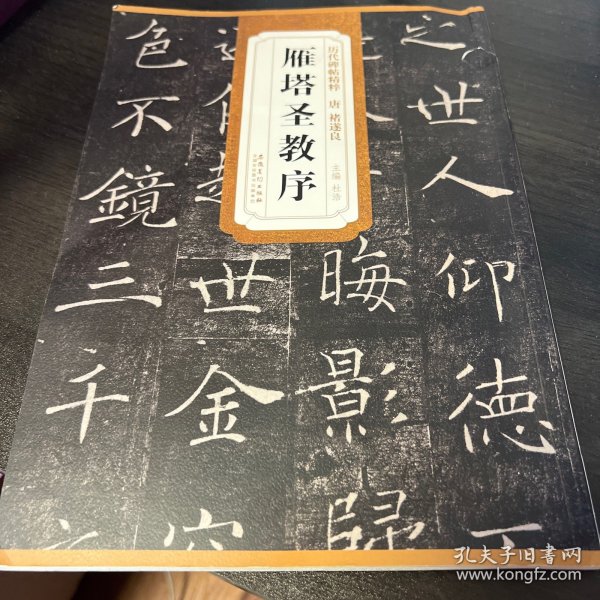 历代碑帖精粹 唐 褚遂良
雁塔圣教序
主编 杜浩
安徽美术出版社
之世人仰德
晦影歸
世金容
色不鏡三千
孔夫子旧书网
www.kongfz.com